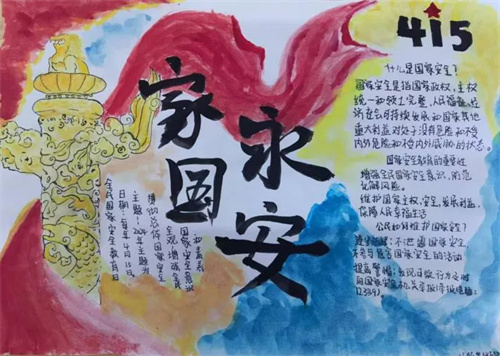 415
家国
永安
全民国家安全教育日
日期:每年4月15日
总体国家安全
观、增强全民
国家安全意识
什么是国家安全?
国家安全是指国家政权、主权
统一和领土完整、人民福祉、经
济社会可持续发展和国家其他
重大利益对处于没有危险和不受
内外危险和不受内外威胁的状态。
国家安全教育的重要性
增强全民国家安全意识,防范
化解风险。
维护国家主权、安全、发展利益,
保障人民幸福生活
公民如何维护国家安全?
遵守法律:不泄露国家安全,
不参与危害国家安全的活动
提高警惕:发现可疑行为及时
向国家安全机关举报(举报电话:
12339)。